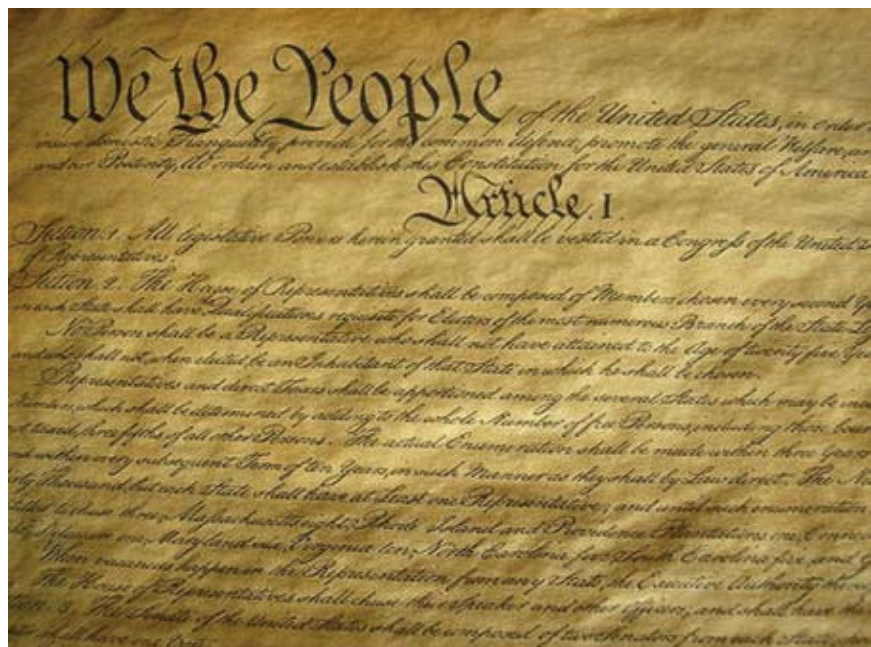 We the People of the United States, in Order
insure domestic Tranquility, provide for the common defence, promote the general Welfare, an
and our Posterity, do ordain and establish this Constitution for the United States of America
Article. I.
Section. 1. All legislative Powers herein granted shall be vested in a Congress of the United
of Representatives.
Section. 2. The House of Representatives shall be composed of Members chosen every second Ye
in each State shall have Qualifications requisite for Electors of the most numerous Branch of the State Le
No Person shall be a Representative who shall not have attained to the Age of twenty five Yea
and who shall not, when elected, be an Inhabitant of that State in which he shall be chosen.
Representatives and direct Taxes shall be apportioned among the several States which may be inc
Numbers, which shall be determined by adding to the whole Number of free Persons, including those boun
three fifths of all other Persons. The actual Enumeration shall be made within three Years
within every subsequent Term of ten Years, in such Manner as they shall by Law direct. The Nu
Thousand, but each State shall have at Least one Representative; and until such enumeration
to chuse three, Massachusetts eight, Rhode Island and Providence Plantations one, Connec
one, Maryland six, Virginia ten, North Carolina five, South Carolina five, and G
When vacancies happen in the Representation from any State, the Executive Authority there
The House of Representatives shall chuse their Speaker and other Officers; and shall have the
3. The Senate of the United States shall be composed of two Senators from each State,
shall have one Vote.